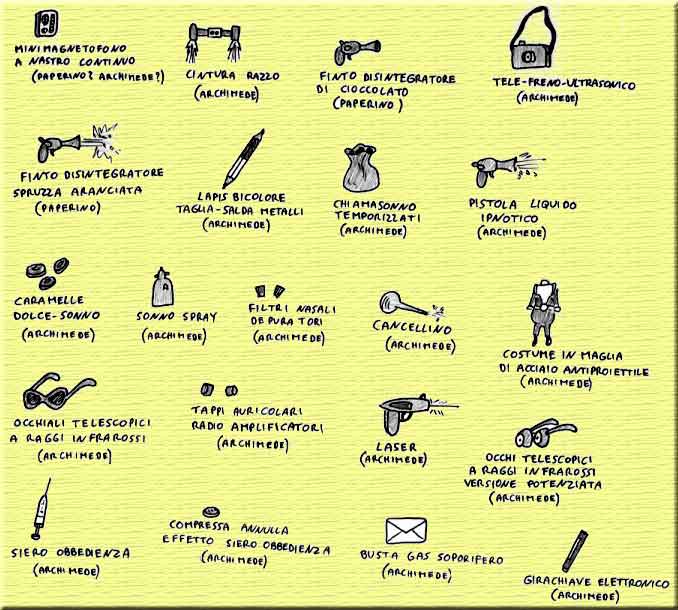 MINIMAGNETOFONO
A NASTRO CONTINUO
(PAPERINO? ARCHIMEDE?)
CINTURA RAZZO
(ARCHIMEDE)
FINTO DISINTEGRATORE
DI CIOCCOLATO
(PAPERINO)
TELE-FRENO-ULTRASONICO
(ARCHIMEDE)
FINTO DISINTEGRATORE
SPRUZZA ARANCIATA
(PAPERINO)
LAPIS BICOLORE
TAGLIA-SALDA METALLI
(ARCHIMEDE)
CHIAMASONNO
TEMPORIZZATI
(ARCHIMEDE)
PISTOLA LIQUIDO
IPNOTICO
(ARCHIMEDE)
CARAMELLE
DOLCE-SONNO
(ARCHIMEDE)
SONNO SPRAY
(ARCHIMEDE)
FILTRI NASALI
DEPURATORI
(ARCHIMEDE)
CANCELLINO
(ARCHIMEDE)
COSTUME IN MAGLIA
DI ACCIAIO ANTIPROIETTILE
(ARCHIMEDE)
OCCHIALI TELESCOPICI
A RAGGI INFRAROSSI
(ARCHIMEDE)
TAPPI AURICOLARI
RADIO AMPLIFICATORI
(ARCHIMEDE)
LASER
(ARCHIMEDE)
OCCHI TELESCOPICI
A RAGGI INFRAROSSI
VERSIONE POTENZIATA
(ARCHIMEDE)
SIERO OBBEDIENZA
(ARCHIMEDE)
COMPRESSA ANNULLA
EFFETTO SIERO OBBEDIENZA
(ARCHIMEDE)
BUSTA GAS SOPORIFERO
(ARCHIMEDE)
GIRACHIAVE ELETTRONICO
(ARCHIMEDE)